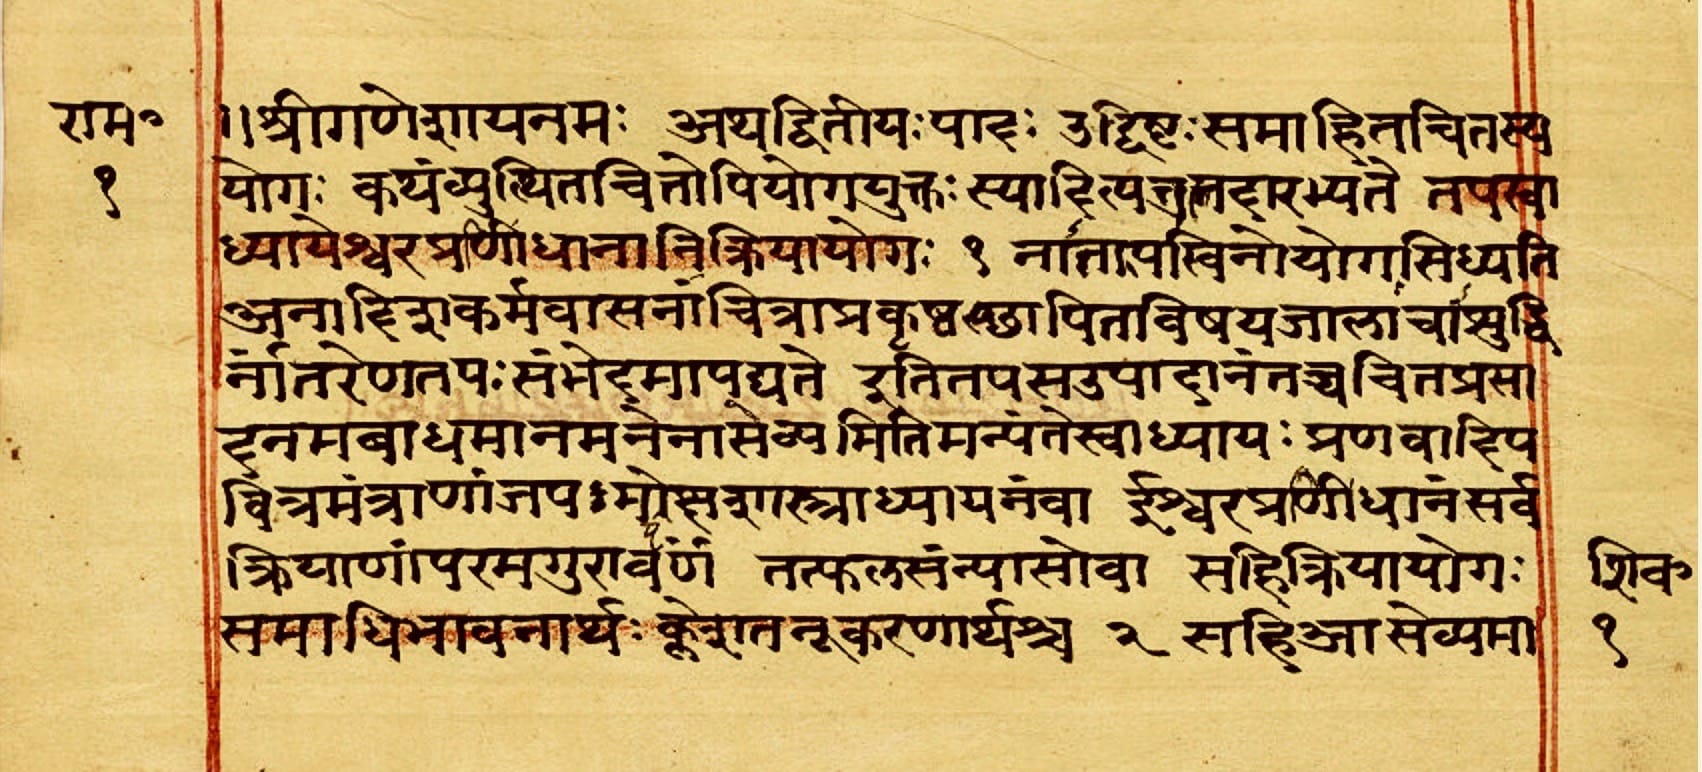 राम॰ ॥श्रीगणेशायनमः अथद्वितीयःपादः उद्दिष्टःसमाहितचितस्य
१ योगः कथंव्युत्थितचित्तोपियोगयुक्तः स्यादित्येतदारभ्यते तपस्वा
ध्यायेश्वरप्रणीधानानिक्रियायोगः १ नातपस्विनोयोगःसिध्यति
अनादिक्लेशकर्मवासनाचित्राप्रत्युपस्थापितविषयजालाचाशुद्धि
र्नांतरेणतपःसंभेदमापद्यते इतितपसउपादानंतच्चचितप्रसा
दनमबाधमानमनेनासेव्यमितिमन्यंतेस्वाध्यायः प्रणवादिप
वित्रमंत्राणांजपःमोक्षशास्त्राध्यायनंवा ईश्वरप्रणीधानंसर्व
क्रियाणांपरमगुरावर्पणं तत्फलसंन्यासोवा सहिक्रियायोगः शिव॰
समाधिभावनार्थः क्लेशतनूकरणार्थश्च २ सहिआसेव्यमा १